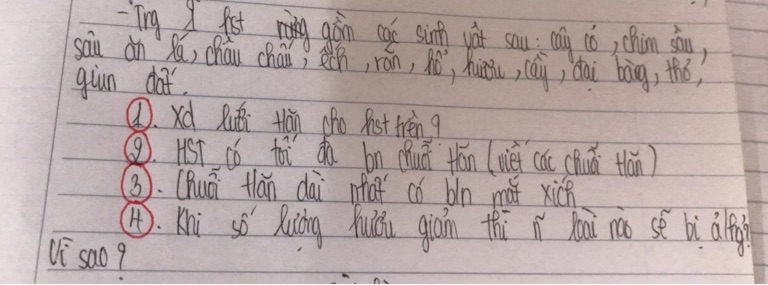 - Trg 1 hst rừng gồm các sinh vật sau: cây cỏ, chim sâu,
sâu ăn lá, châu chấu, ếch, rắn, hổ, hươu, cầy, đại bàng, thỏ,
giun đất.
1. Xd lưới tăn cho hst trên?
2. HST có tối đa bn chuỗi tăn (viết các chuỗi tăn)
3. Chuỗi tăn dài nhất có bn mắt xích
4. Khi số lượng hươu giảm thì n~ loài nào sẽ bị ả/hg?
Vì sao?